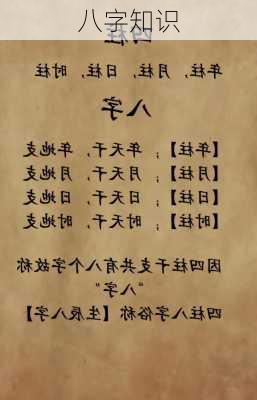 八字知识
四柱
年柱，月柱，日柱，时柱
八字
【年柱】：年天干，年地支
【月柱】：月天干，月地支
【日柱】：日天干，日地支
【时柱】：时天干，时地支
因四柱干支共有八个字故称
“八字”
四柱八字俗称【生辰八字】